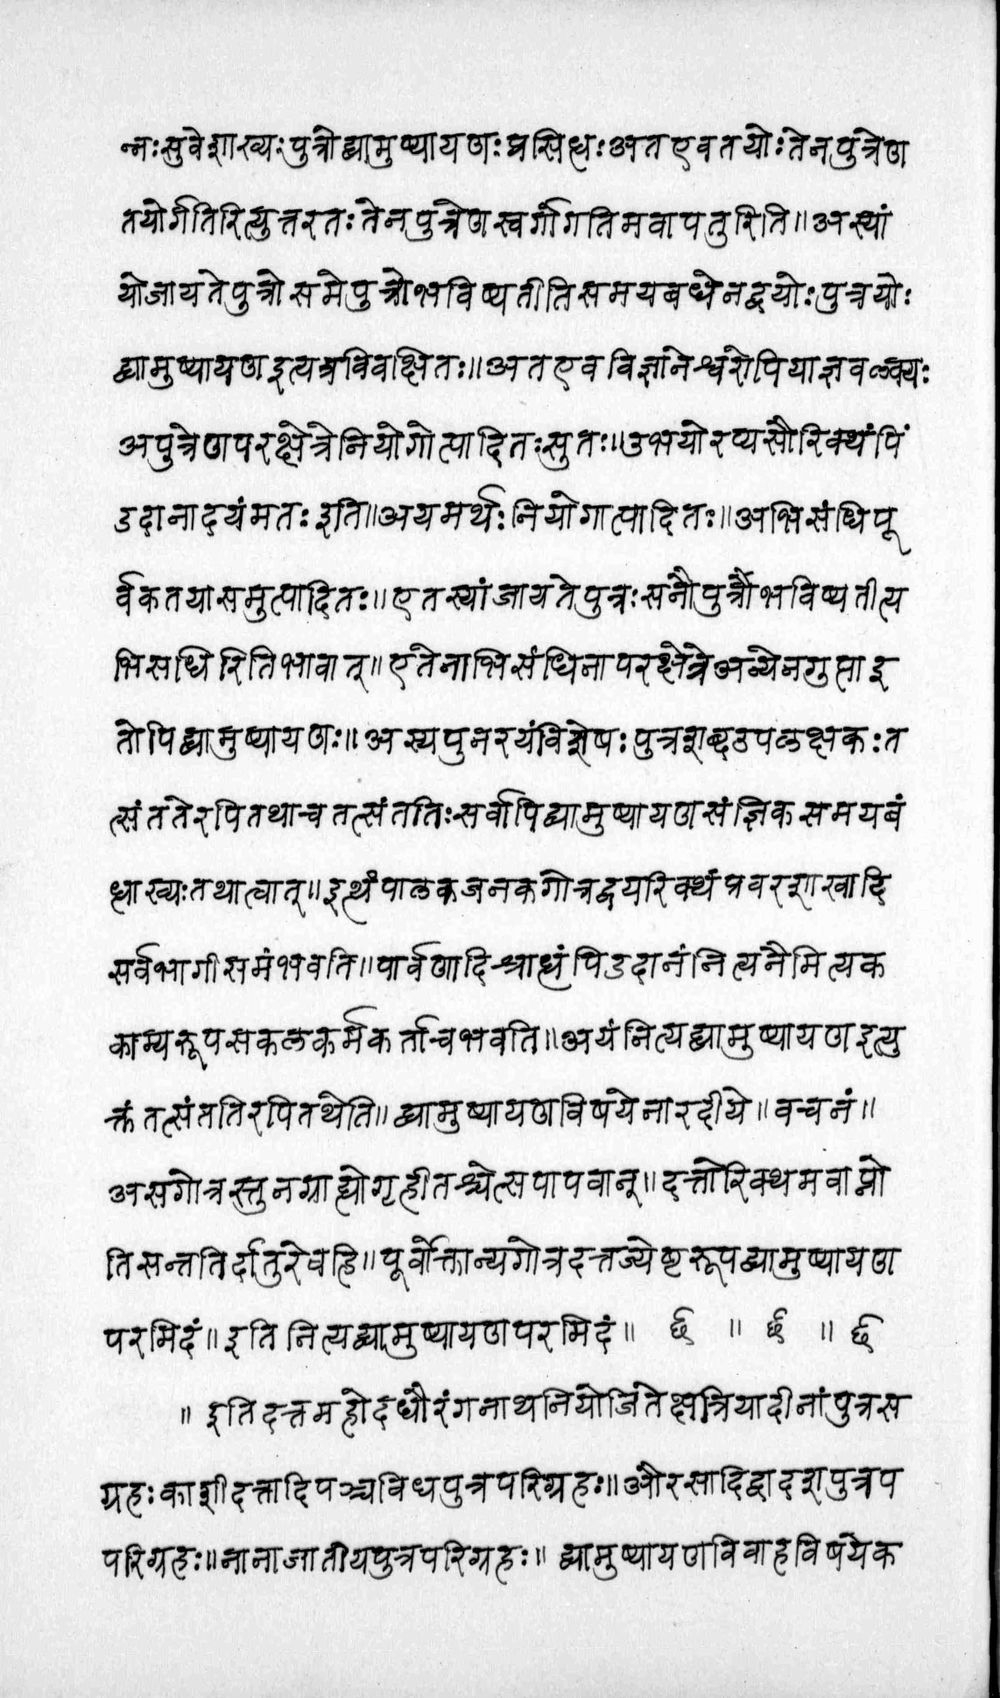 न्नःसुवेशाख्यःपुत्रोद्यामुष्यायणःप्रसिधःअतएवतयोःतेनपुत्रेण
तयोर्गतिरित्युत्तरतःतेनपुत्रेणस्वर्गागतिमवापतुरिति॥अस्यां
योजायतेपुत्रोसमेपुत्रोभविष्यतीतिसमयबधेनद्वयोःपुत्रयोः
द्यामुष्यायणइत्यत्रविवक्षितः॥अतएवविज्ञानेश्वरोपियाज्ञवल्क्यः
अपुत्रेणपरक्षेत्रेनियोगोत्पादितःसुतः॥उभयोरप्यसौरिक्थंपिं
डदानादयंमतःइति॥अयमर्थःनियोगात्पादितः॥अभिसंधिपू
र्वकतयासमुत्पादितः॥एतस्यांजायतेपुत्रःसनौपुत्रौभविष्यतीत्य
भिसधिरितिभावात्॥एतेनाभिसंधिनापरक्षेत्रेअन्येनगुप्ताइ
तोपिद्यामुष्यायणः॥अस्यपुनरयंविशेषःपुत्रशब्दउपलक्षकःत
त्संततेरपितथाचतत्संततिःसर्वापिद्यामुष्यायणसंज्ञिकसमयबं
धाख्यःतथात्वात्॥इत्थंपालकजनकगोत्रद्वयरिक्थंप्रवरशाखादि
सर्वभागीसमंभवति॥पार्वणादिश्राधंपिडदानंनित्यनैमित्यक
काम्यरूपसकलकर्मकर्ताचभवति॥अयंनित्यद्यामुष्यायणइत्यु
क्तंतत्संततिरपितथेति॥द्यामुष्यायणविषयेनारदीये॥वचनं॥
असगोत्रस्तुनग्राह्योगृहीतश्चेत्सपापवान्॥दत्तोरिक्थमवाप्नो
तिसन्ततिर्दातुरेवहि॥पूर्वोक्तान्यगोत्रदत्तज्येष्टरूपद्यामुष्यायण
परमिदं॥इतिनित्यद्यामुष्यायणपरमिदं॥ छ ॥ छ ॥ छ
॥इतिदत्तमहोदधौरंगनाथनियोजितेक्षत्रियादीनांपुत्रस
ग्रहःकाशीदत्तादिपञ्चविधपुत्रपरिग्रहः॥औरसादिद्वादशपुत्रप
परिग्रहः॥नानाजातीयपुत्रपरिग्रहः॥द्यामुष्यायणविवाहविषयेक